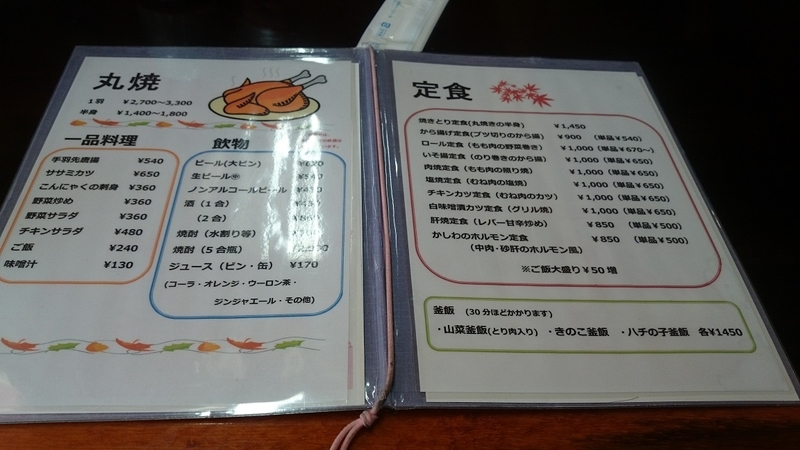 丸焼
1羽 ¥2,700~3,300
半身 ¥1,400~1,800
一品料理
手羽先唐揚 ¥540
ササミカツ ¥650
こんにゃくの刺身 ¥360
野菜炒め ¥360
野菜サラダ ¥360
チキンサラダ ¥480
ご飯 ¥240
味噌汁 ¥130
飲物
ビール(大ビン)
生ビール㊥
ノンアルコールビール
酒(1合)
(2合)
焼酎(水割り等)
焼酎(5合瓶)
ジュース(ビン・缶) ¥170
(コーラ・オレンジ・ウーロン茶・
ジンジャエール・その他)
定食
焼きとり定食(丸焼きの半身) ¥1,450
から揚げ定食(ブツ切りのから揚) ¥900 (単品¥540)
ロール定食(もも肉の野菜巻き) ¥1,000(単品¥670~)
いそ揚定食(のり巻きのから揚) ¥1,000(単品¥650)
肉焼定食(もも肉の照り焼) ¥1,000(単品¥650)
塩焼定食(むね肉の塩焼) ¥1,000(単品¥650)
チキンカツ定食(むね肉のカツ) ¥1,000(単品¥650)
白味噌漬カツ定食(グリル焼) ¥1,000(単品¥650)
肝焼定食(レバー甘辛炒め) ¥850 (単品¥500)
かしわのホルモン定食 ¥850 (単品¥500)
(中肉・砂肝のホルモン風)
※ご飯大盛り¥50増
釜飯 (30分ほどかかります)
・山菜釜飯(とり肉入り) ・きのこ釜飯 ・ハチの子釜飯 各¥1450